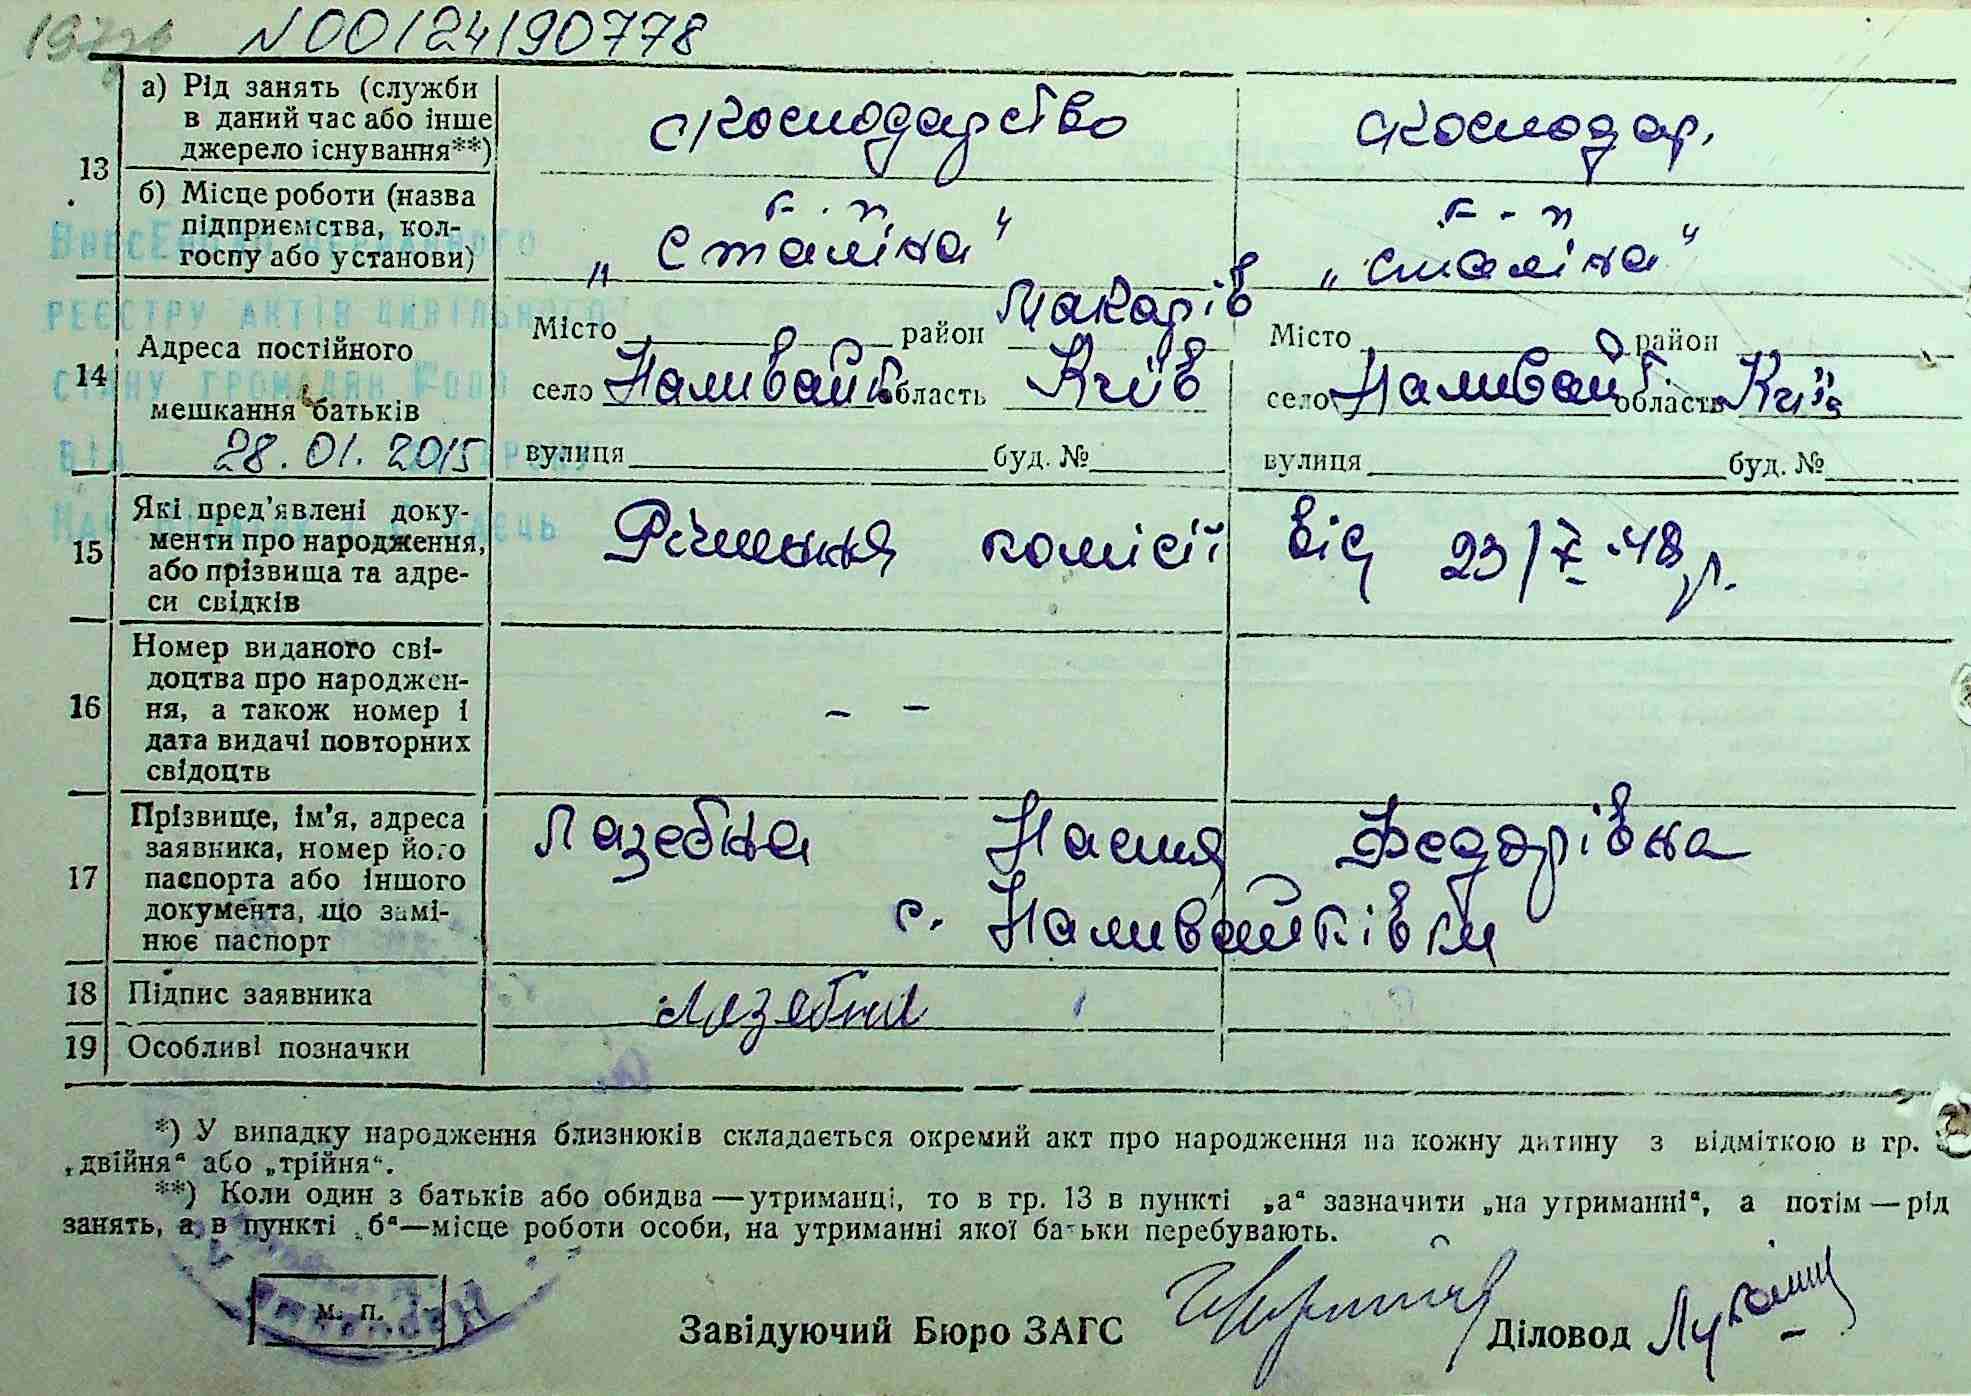 N00124190778
13
а) Рід занять (служби
в даний час або інше
джерело існування**)
скосподарство
скосподар.
б) Місце роботи (назва
підприємства, кол-
госпу або установи)
к-п
„Сталіна"
к-п
„Сталіна"
Внесено до Державного
реєстру актів цивільного
стану громадян
від 28.01.2015 року
14
Адреса постійного
мешкання батьків
Місто район Макарів
село Наливайк область Київ
вулиця буд. №
Місто район
село Наливай область Київ
вулиця буд. №
15
Які пред'явлені доку-
менти про народження,
або прізвища та адре-
си свідків
Рішення комісії від 23/X.48 р.
16
Номер виданого сві-
доцтва про народжен-
ня, а також номер і
дата видачі повторних
свідоцтв
– –
17
Прізвище, ім'я, адреса
заявника, номер його
паспорта або іншого
документа, що замі-
нює паспорт
Лазебна Настя Федорівна
с. Наливайківки
18
Підпис заявника
Лазебна
19
Особливі позначки
*) У випадку народження близнюків складається окремий акт про народження на кожну дитину з відміткою в гр.
„двійня“ або „трійня“.
**) Коли один з батьків або обидва — утриманці, то в гр. 13 в пункті „а“ зазначити „на утриманні“, а потім — рід
занять, а в пункті „б“ — місце роботи особи, на утриманні якої батьки перебувають.
М. П.
Завідуючий Бюро ЗАГС
Діловод